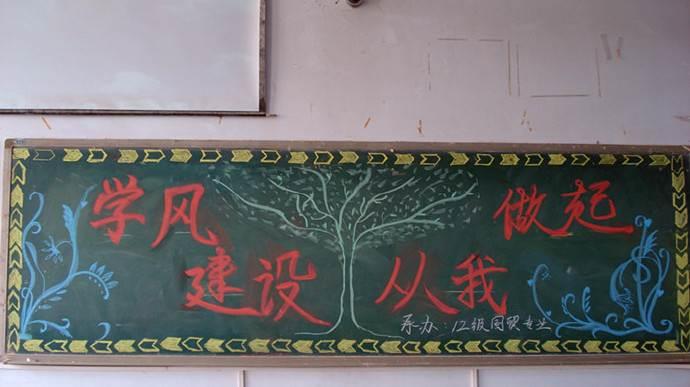 学风
建设
从我
做起
承办：12级国贸专业